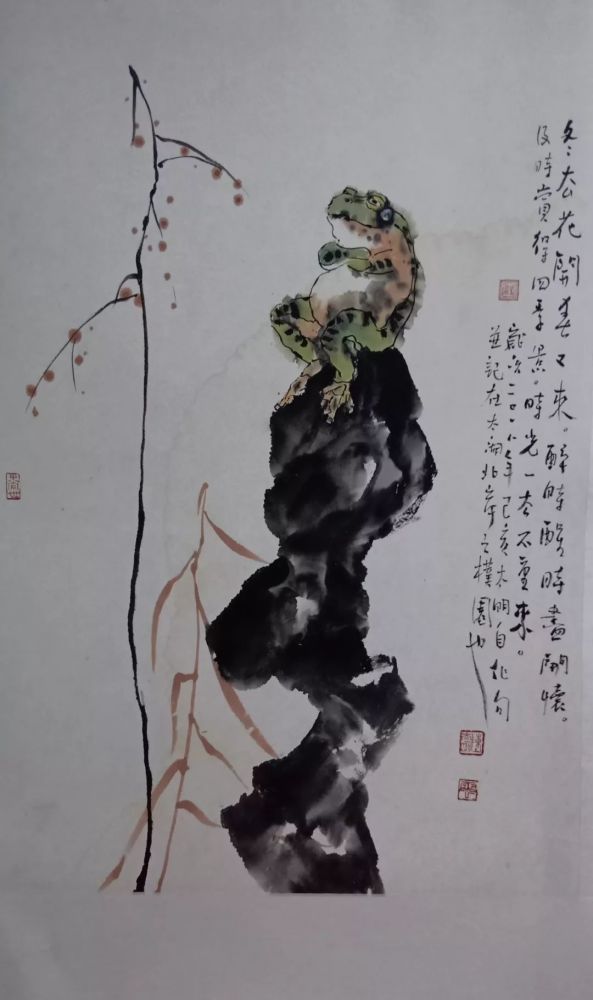 冬去花開春又來。醉時醒時盡開懷。
及時賞得四季景。時光一去不重來。
歲次二〇一年己亥太明自句
並記在太湖北岸之樸園也